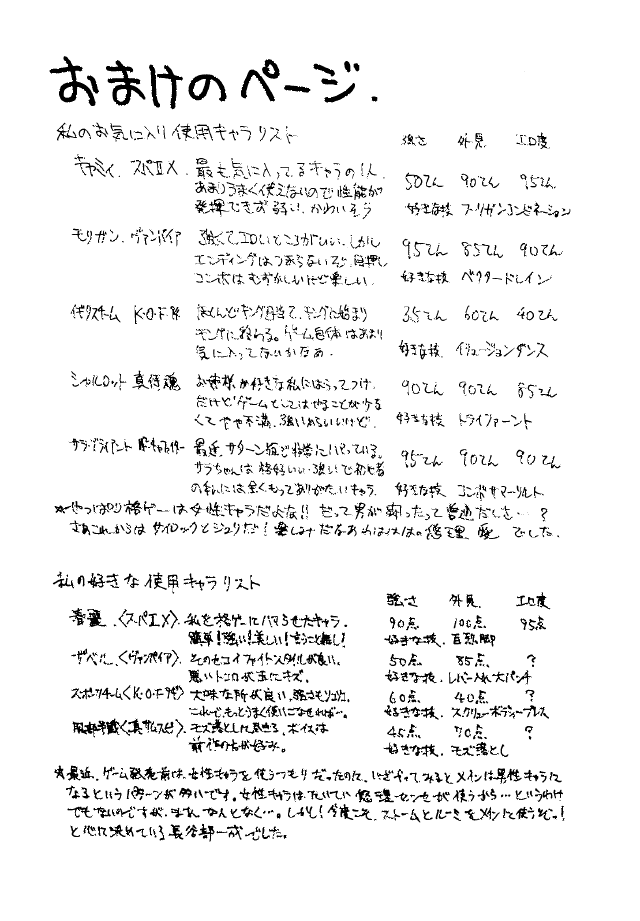 おまけのページ.
私のお気に入り使用キャラリスト 強さ 外見 エロ度
キャミィ. スパⅡX. 最も気に入ってるキャラの1人 50てん 90てん 95てん
あまりうまく使えないので性能が
発揮できず弱い. かわいそう 好きな技 フーリガンコンビネーション
モリガン. ヴァンパイア 強くてエロいところがいい. しかし 95てん 85てん 90てん
エンディングはつまらないぞ. 目押し
コンボはむずかしいけど楽しい. 好きな技 ベクタードレイン
イギリスチーム K・O・F'94 ほとんどキング目当て. キングに始まり 35てん 60てん 40てん
キングに終わる。ゲーム自体はあまり
気に入ってないかなあ. 好きな技. イリュージョンダンス
シャルロット 真侍魂 お姉様が好きな私にはうってつけ. 90てん 90てん 85てん
だけどゲームとしてはやることが少な
くてやや不満. 強いからいいけど. 好きな技 トライファーント
サラ・ブライアント バーチャファイター 最近サターン版で非常にハマっている。 95てん 90てん 90てん
サラちゃんは格好いい・強いで初心者
の私には全くもってありがたいキャラ. 好きな技 コンボサマーソルト
☆やっぱり格ゲーは女性キャラだよな!! だって男が闘ったって普通だしさ…?
さあこれからはサイロックとジュリだ! 楽しみだなあわはははの悠理 愛 でした.
私の好きな使用キャラリスト 強さ 外見. エロ度
春麗.〈スパⅡX〉. 私を格ゲーにハマらせたキャラ. 90点 100点 95点
簡単!強い!美しい!言うこと無し! 好きな技. 百烈脚
ザベル.〈ヴァンパイア〉. そのセコイファイトスタイルが良い. 50点 85点. ?
悪いトコロが玉にキズ. 好きな技. レバー入れ大パンチ
スポーツチーム〈K・O・F'94〉 大味な所が良い. 強さもソコソコ. 60点 40点 ?
これで、もっとうまく使いこなせれば…. 好きな技. スクリューボディープレス
服部半蔵〈真サムスピ〉. モズ落としに始まる. ボイスは 45点 70点. ?
前作の方が好み. 好きな技. モズ落とし
☆最近、ゲーム発売前は女性キャラを使うつもりだったのに、いざやってみるとメインは男性キャラに
なるというパターンが多いです。女性キャラはたいてい悠理センセが使うから…というわけ
でもないのですが、まぁ、なんとなく…。しかし!今度こそ、ストームとルーミをメインに使うぞっ!
と心に決めている長谷部一成でした。